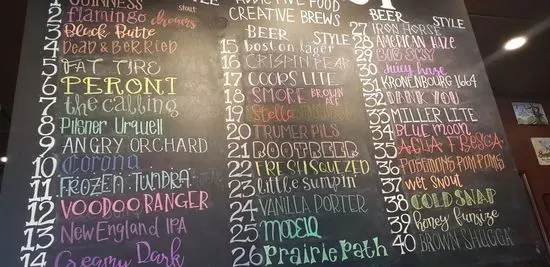 GUINNESS stout STYLE
2 flamingo
3 Black Butte
4 DEAD & BERRIED
5 FAT TIRE
6 PERONI
7 the calling
8 Pilsner Urquell
9 ANGRY ORCHARD
10 Corona
11 FROZEN TUNDRA
12 VOODOO RANGER
13 New England IPA
14 Creamy Dark
ADDICTIVE FOOD
CREATIVE BREWS
BEER STYLE
15 boston lager
16 CRISPIN PEAR
17 COOPS LITE
18 SMORE BROWN ALE
19 Stella
20 TRUMER PILS
21 ROOTBEER
22 FRESH SQUEEZED
23 little sumpin'
24 VANILLA PORTER
25 MODELO
26 Prairie Path
BEER STYLE
27 IRON HORSE
28 AMERICAN HAZE
29
30 Juicy haze
31 KRONENBOURG 1664
32 DANK YOU
33 MILLER LITE
34 BLUE MOON
35 AGUA FRESCA
36 POSEIDONS POM POMS
37 wet snout
38 COLD SNAP
39 honey funsize
40 BROWN SHUGGA'